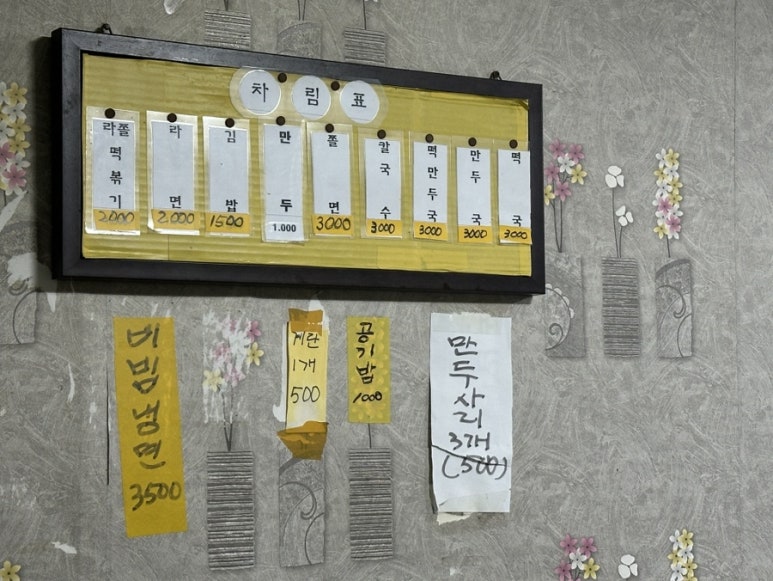 차림표
라쫄떡볶기
2000
라면
2000
김밥
1500
만두
1.000
쫄면
3000
칼국수
3000
떡만두국
3000
만두국
3000
떡국
3000
비빔냉면
3500
계란
1개
500
공기밥
1000
만두사리
3개
(500)